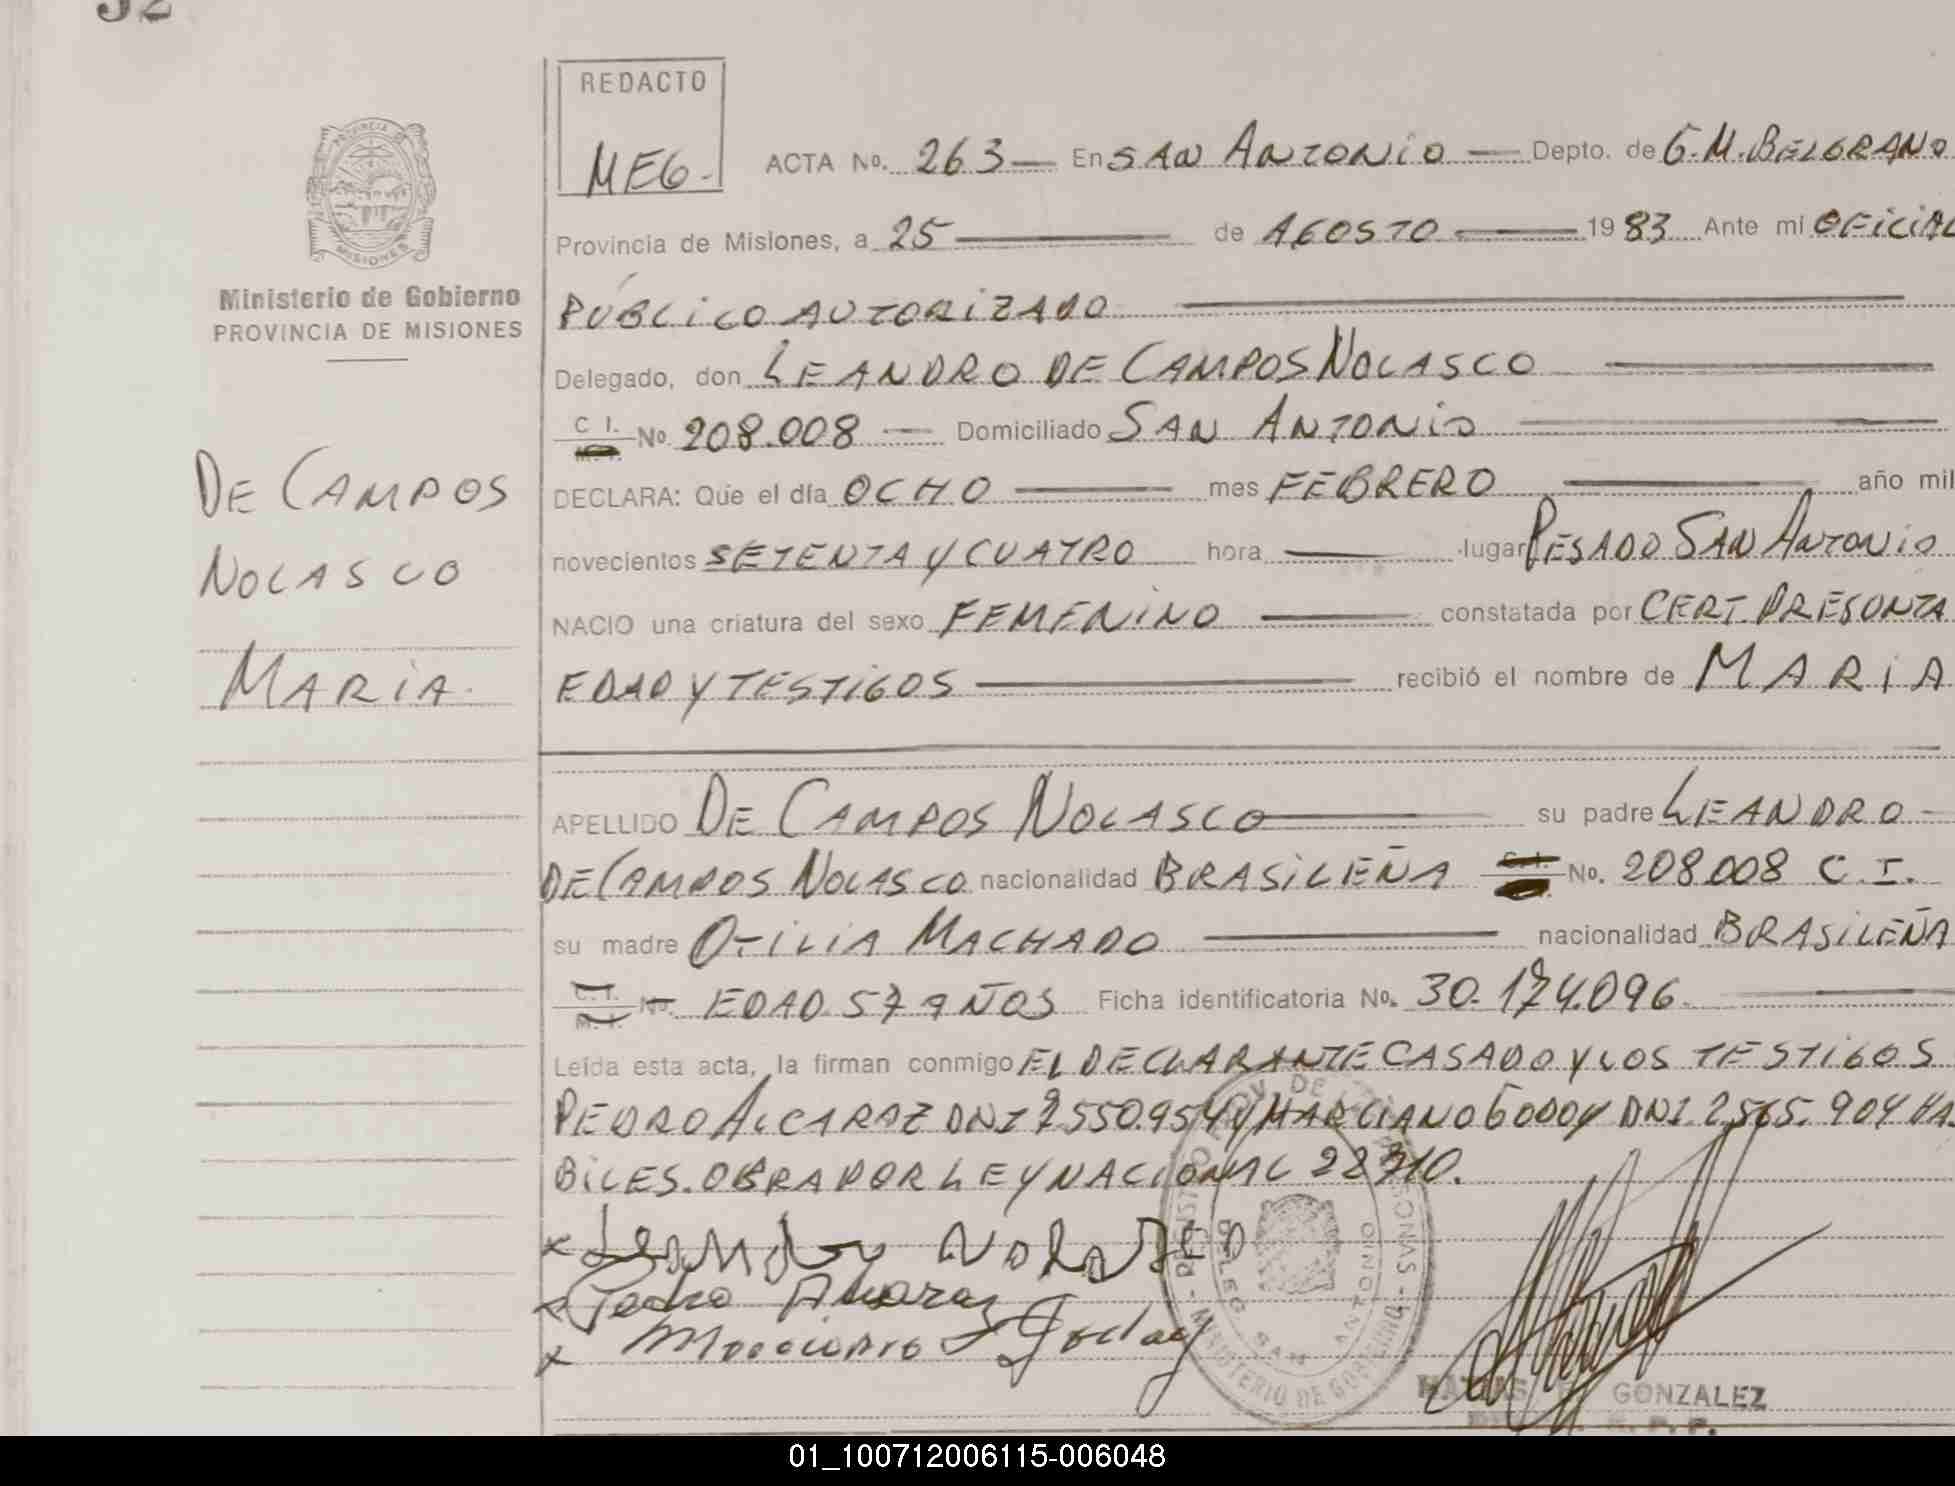 32
REDACTO
MEG.
ACTA No. 263 En SAN ANTONIO Depto. de G. M. BELGRANO
Provincia de Misiones, a 25 de AGOSTO 1983 Ante mi OFICIAL
PÚBLICO AUTORIZADO
Delegado, don LEANDRO DE CAMPOS NOLASCO
C I. No 208.008 Domiciliado SAN ANTONIO
DECLARA: Que el día OCHO mes FEBRERO año mil
novecientos SETENTA Y CUATRO hora lugar PESADO SAN ANTONIO
NACIO una criatura del sexo FEMENINO constatada por CERT. PRESUNTA
EDAD Y TESTIGOS recibió el nombre de MARIA
PROVINCIA DE
MISIONES
Ministerio de Gobierno
PROVINCIA DE MISIONES
DE CAMPOS
NOLASCO
MARIA.
APELLIDO DE CAMPOS NOLASCO su padre LEANDRO
DE CAMPOS NOLASCO nacionalidad BRASILEÑA C.I. No. 208.008 C.I.
su madre OTILIA MACHADO nacionalidad BRASILEÑA
C.I. M.I. No. EDAD 57 AÑOS Ficha identificatoria No. 30.174.096.
Leída esta acta, la firman conmigo EL DECLARANTE CASADO Y LOS TESTIGOS
PEDRO ALCARAZ DNI 7.550.954 Y MARCIANO GODOY DNI. 2.565.904 HA-
BILES. OBRA POR LEY NACIONAL 22710.
Pedro Alcaraz
Marciano Godoy
MINISTERIO DE GOBIERNO
DELEG. SAN ANTONIO
GONZALEZ
01_100712006115-006048